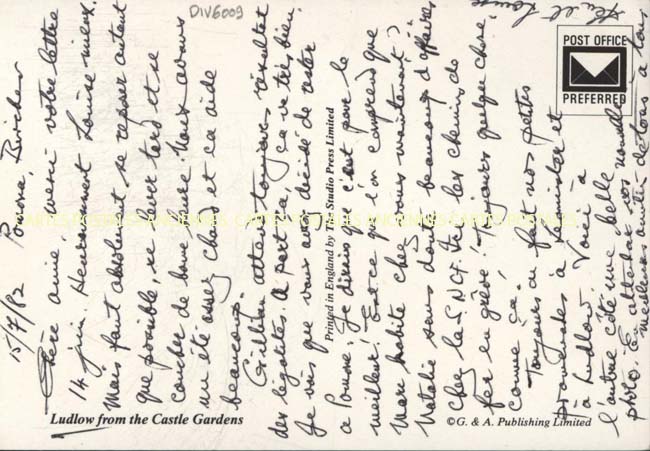 DIV6009
POST OFFICE
PREFERRED
15/7/82 Pomona, Birches
Chère amie, merci votre lettre
14 juin. Heureusement Louise mieux.
Mais faut absolument se reposer autant
que possible, se lever tard et se
coucher de bonne heure. Nous avons
un été assez chaud et ça aide
beaucoup.
Gillian attend toujours résultat
des légalités. A part ça, ça va très bien.
Je vois que vous avez décidé de rester
à Je dirais que c'est pour le
meilleur! Est-ce que l'on comprend que
Man habite chez vous maintenant?
Natalie sans doute beaucoup d'affaires
chez la S.N.C.F. Ici les chemins de
fer en grève! Toujours quelque chose,
comme ça.
Toujours on fait nos petites
promenades à Leominster et
à Ludlow. Voici à
l'autre côté une belle
photo. En attendant vos nouvelles
meilleures amitiés de tous à tous
et Louise
Printed in England by The Studio Press Limited
Ludlow from the Castle Gardens
©G. & A. Publishing Limited
CARTES POSTALES ANCIENNES CARTES POSTALES ANCIENNES CARTES POSTALES